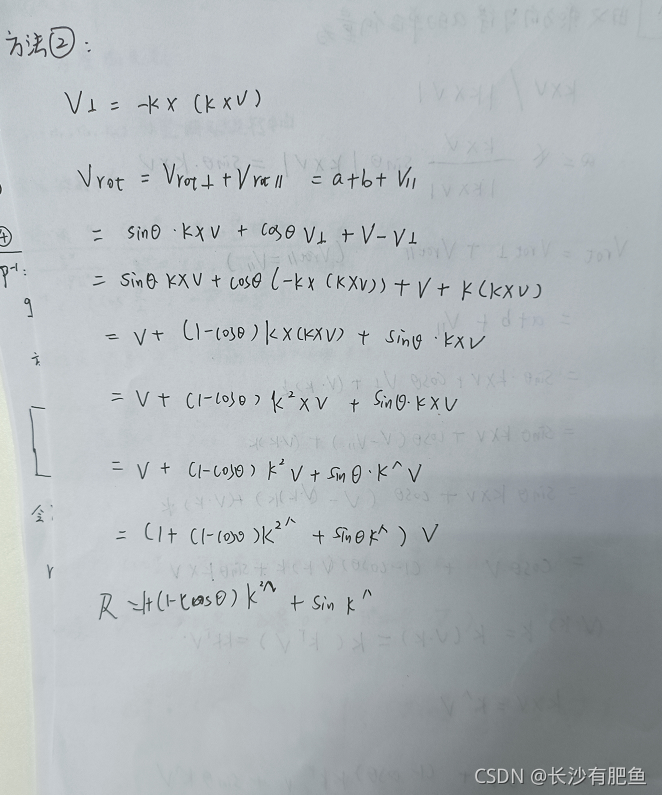 方法②:
V⊥ = -k × (k×V)
Vrot = Vrot⊥ + Vrot∥ = a+b + V∥
= sinθ · k×V + cosθ V⊥ + V-V⊥
= sinθ k×V + cosθ (-k× (k×V)) + V + k(k×V)
= V + (1-cosθ) k×(k×V) + sinθ · k×V
= V + (1-cosθ) k²×V + sinθ·k×V
= V + (1-cosθ) k²V + sinθ·k^V
= (1+ (1-cosθ)k²^ + sinθk^) V
R = I+(1-cosθ) k²^ + sin k^
④
p⁻¹:
g
CSDN @长沙有肥鱼